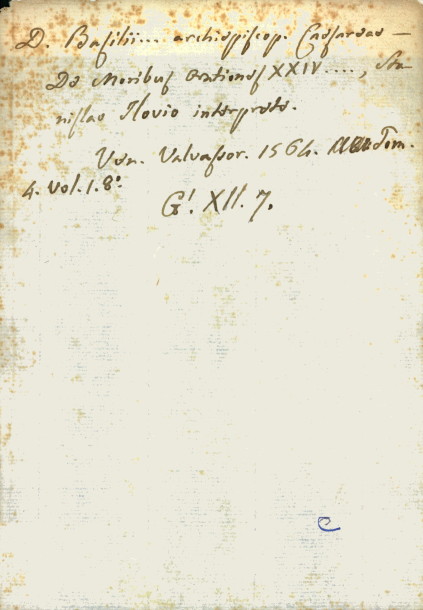 D. Basilii.... archiepiscop. Caesareae —
De Moribus Orationes XXIV...., Sta-
nislao Ilovio interprete.
Ven. Valvassor. 1564. Tom.
4. vol. 1. 8°
G'. XII. 7.